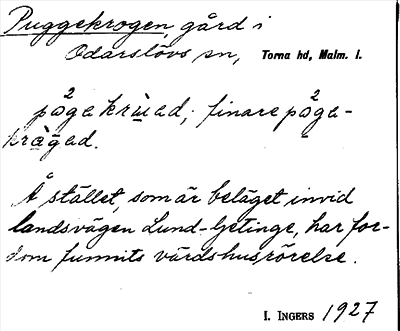 Puggekrogen, gård i
Odarslövs sn, Torna hd, Malm. l.
på²ga krùad; finare på²ga-
krä̀gad.
Å stället, som är beläget invid
landsvägen Lund-Getinge, har for-
dom funnits värdshusrörelse.
I. INGERS 1927